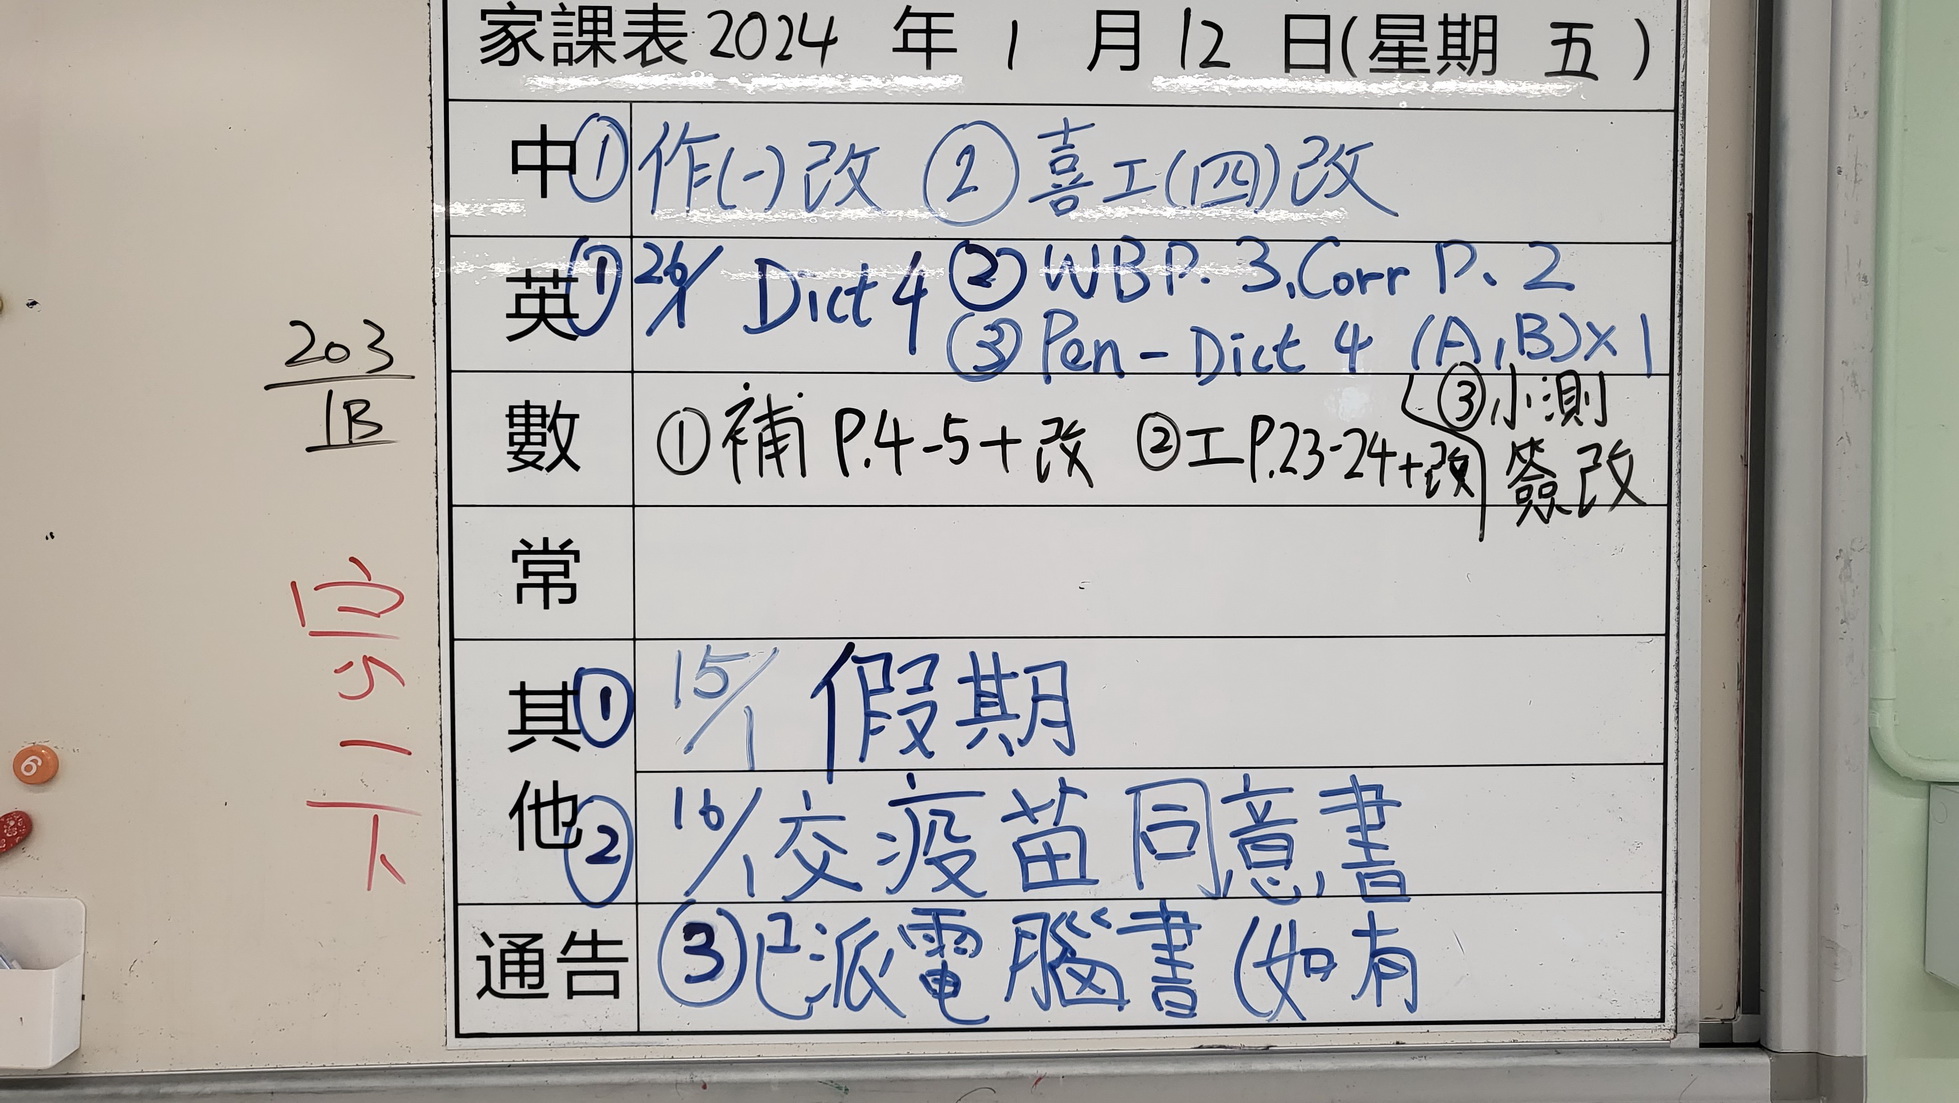 家課表 2024 年 1 月 12 日(星期 五 )
中 ① 作(一)改 ② 喜工(四)改
英 ① 26/1 Dict 4 ② WB P. 3, Corr P. 2
③ Pen - Dict 4 (A,B)×1
數 ① 補 P.4-5+改 ② 工P.23-24+改 ③ 小測
簽改
常
其他 ① 15/1 假期
② 16/1 交疫苗同意書
通告 ③ 已派電腦書 (如有
203
1B
6